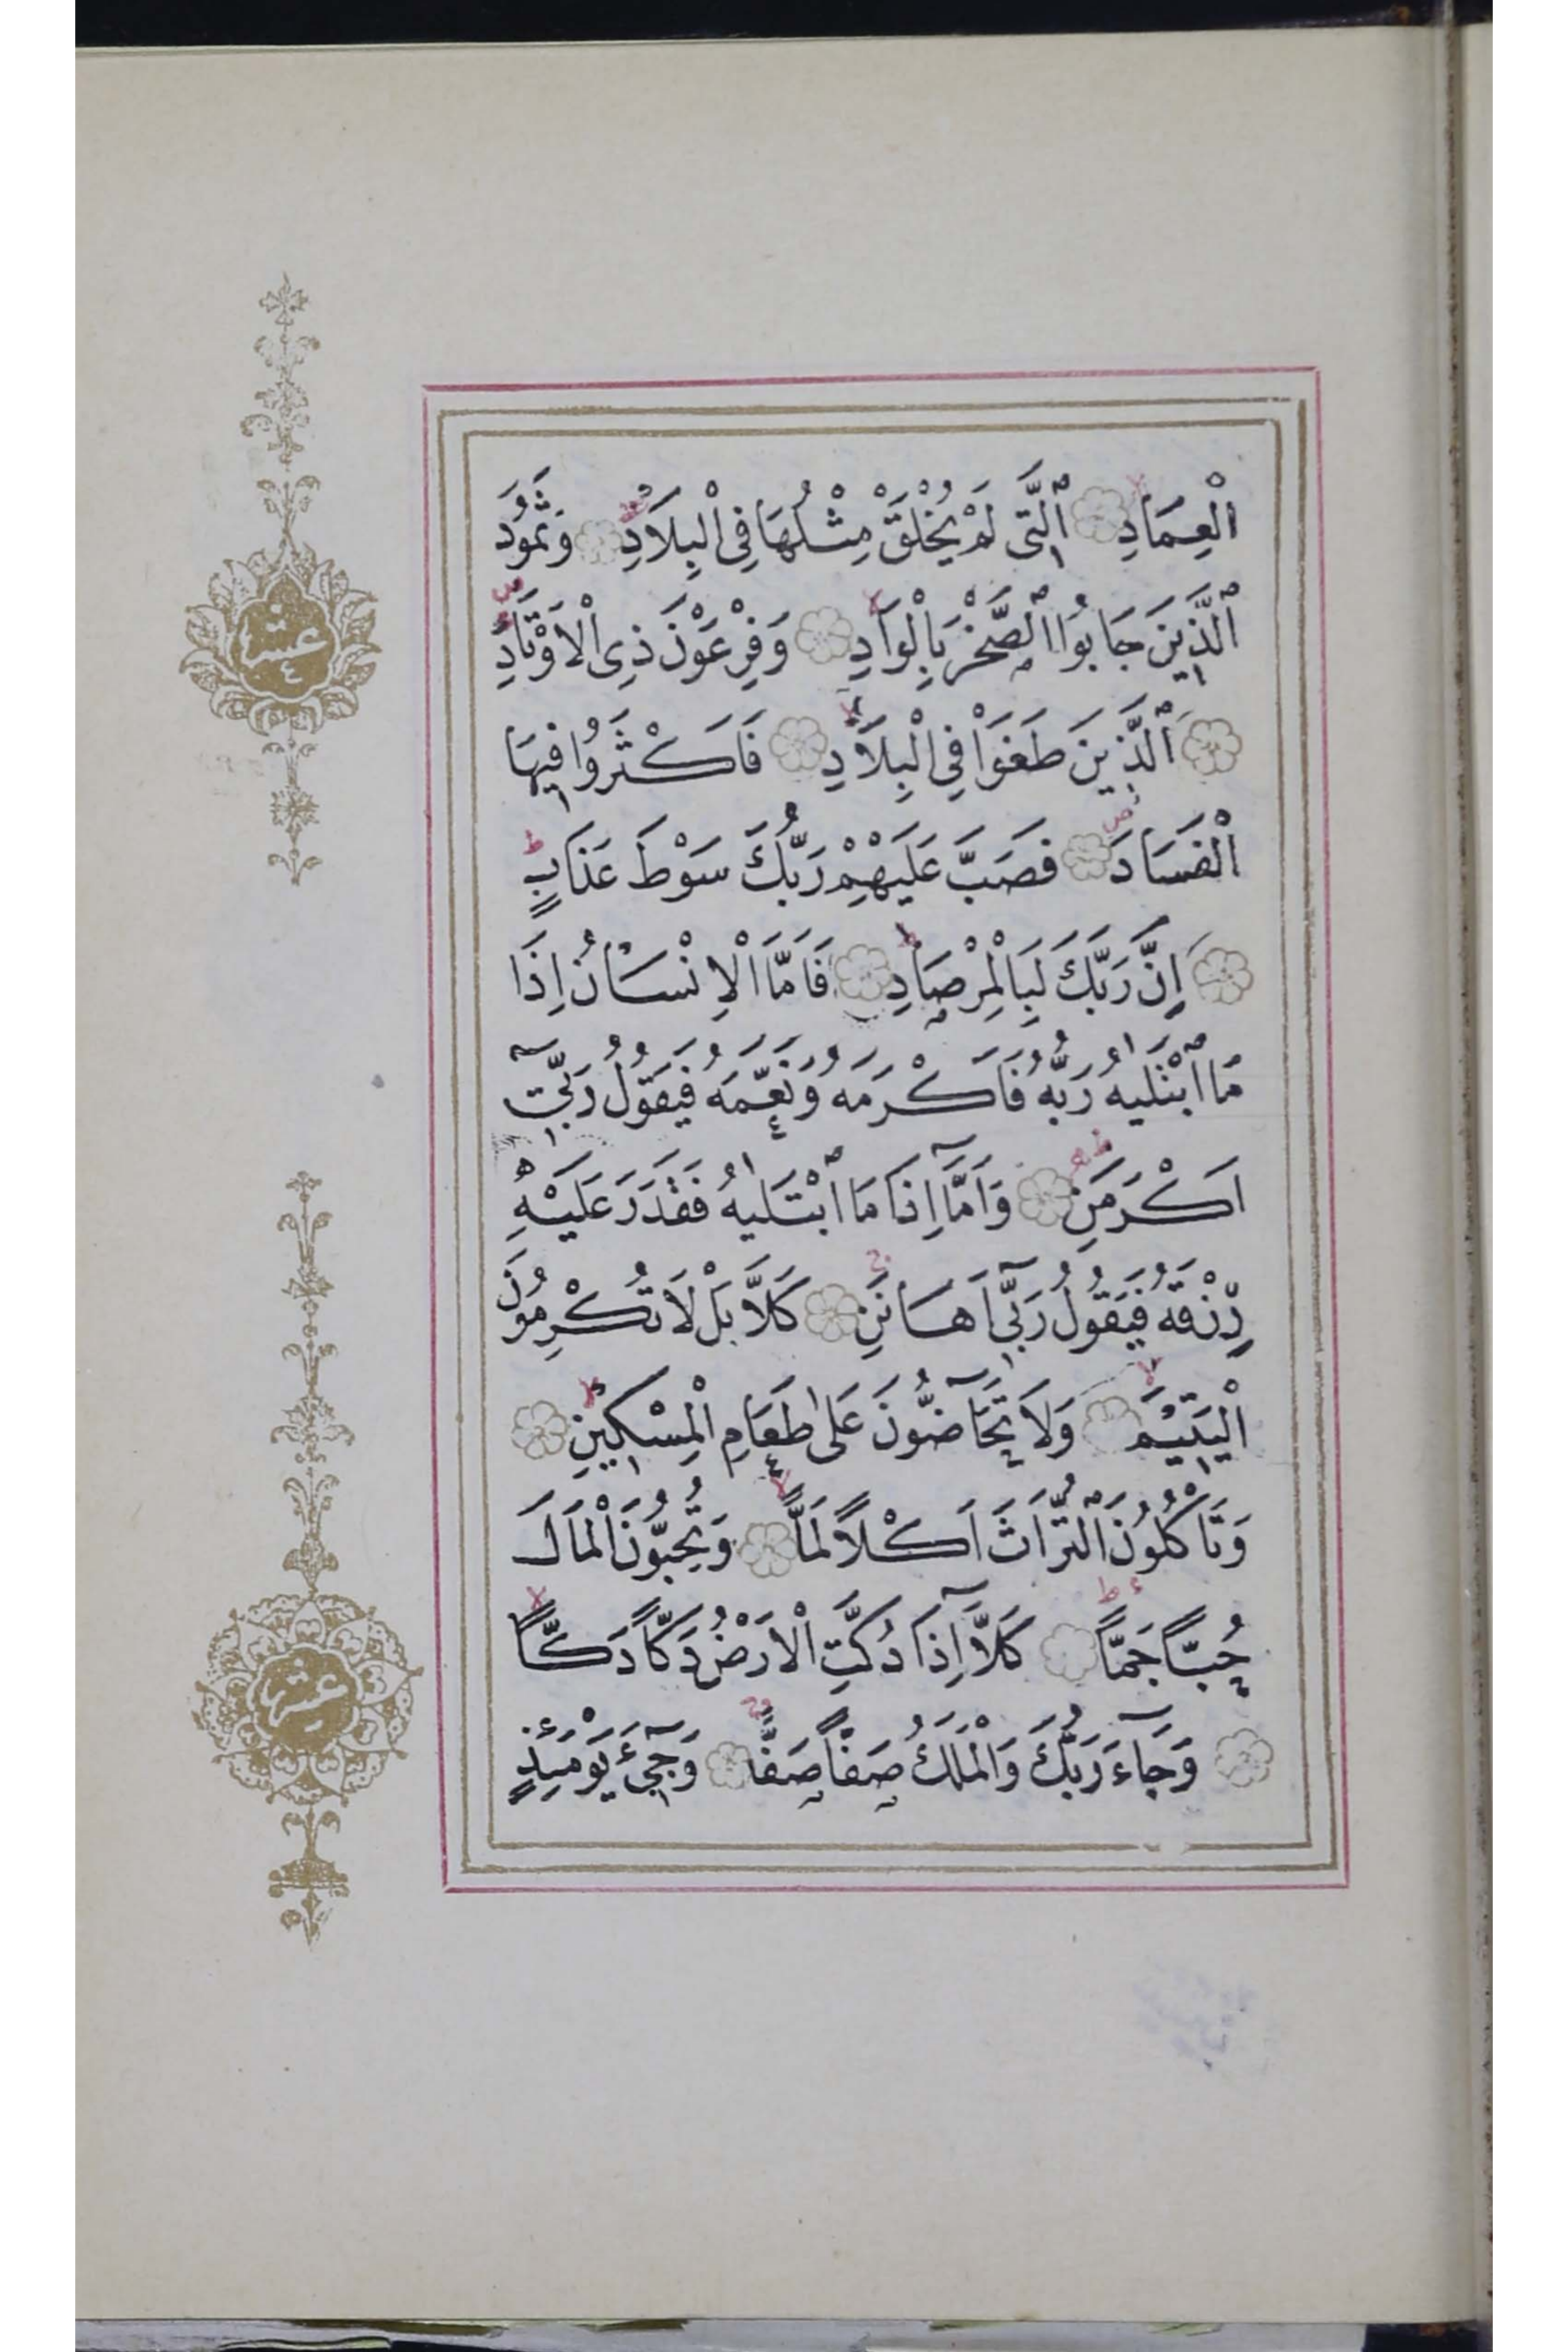 الْعِمَادِ اَلَّتِى لَمْ يُخْلَقْ مِثْلُهَا فِى الْبِلَادِ وَثَمُودَ
الَّذِينَ جَابُوا الصَّخْرَ بِالْوَادِ وَفِرْعَوْنَ ذِى الْاَوْتَادِ
اَلَّذِينَ طَغَوْا فِى الْبِلَادِ فَاَكْثَرُوا فِيهَا
الْفَسَادَ فَصَبَّ عَلَيْهِمْ رَبُّكَ سَوْطَ عَذَابٍ
اِنَّ رَبَّكَ لَبِالْمِرْصَادِ فَاَمَّا الْاِنْسَانُ اِذَا
مَا ابْتَلٰيهُ رَبُّهُ فَاَكْرَمَهُ وَنَعَّمَهُ فَيَقُولُ رَبِّىٓ
اَكْرَمَنِ وَاَمَّآ اِذَا مَا ابْتَلٰيهُ فَقَدَرَ عَلَيْهِ
رِزْقَهُ فَيَقُولُ رَبِّىٓ اَهَانَنِ كَلَّا بَلْ لَا تُكْرِمُونَ
الْيَتِيْمَ وَلَا تَحَآضُّونَ عَلٰى طَعَامِ الْمِسْكِينِ
وَتَاْكُلُونَ التُّرَاثَ اَكْلًا لَمًّا وَتُحِبُّونَ الْمَالَ
حُبًّا جَمًّا كَلَّآ اِذَا دُكَّتِ الْاَرْضُ دَكًّا دَكًّا
وَجَآءَ رَبُّكَ وَالْمَلَكُ صَفًّا صَفًّا وَجِىٓءَ يَوْمَئِذٍ
عشر
٤
عشر